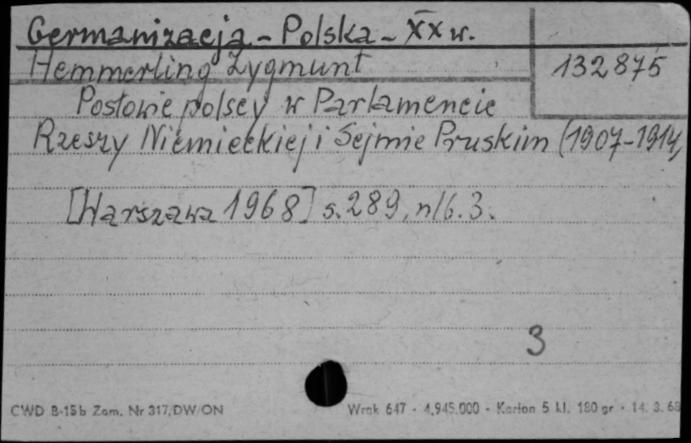 Germanizacja - Polska - XX w.
Hemmerling Zygmunt
132875
Posłowie polscy w Parlamencie
Rzeszy Niemieckiej i Sejmie Pruskim (1907-1914)
[Warszawa 1968] s. 289, nlb. 3.
3
CWD B-15b Zam. Nr 317/DW/ON
Wrak 647 - 4.945.000 - Karton 5 kl. 180 gr - 14. 3. 68